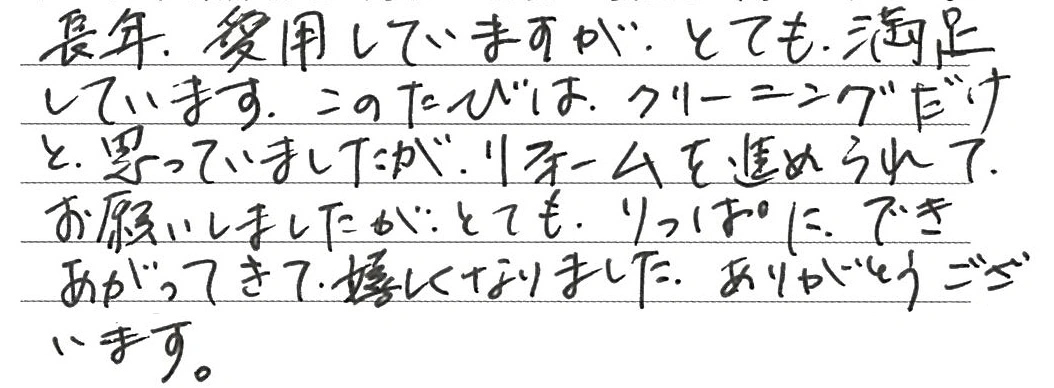 長年、愛用していますが、とても、満足
しています。このたびは、クリーニングだけ
と、思っていましたが、リフォームを進められて、
お願いしましたが、とても、りっぱに、でき
あがってきて、嬉しくなりました。ありがとうござ
います。